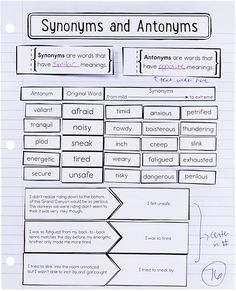 Synonyms and Antonyms
Synonyms are words that have similar meanings.
Antonyms are words that have opposite meanings.
Antonym Original Word Synonyms
from mild to extreme
valiant afraid timid anxious petrified
tranquil noisy rowdy boisterous thundering
plod sneak inch creep slink
energetic tired weary fatigued exhausted
secure unsafe risky dangerous perilous
I didn't realize riding down to the bottom
of the Grand Canyon would be so perilous.
The donkeys we were riding didn't seem to
think it was very risky though.
I felt unsafe.
I was so fatigued from my back-to-back
tennis matches the day before, my energetic
brother only made me more tired.
I was so tired
I tried to slink into the room unnoticed,
but I wasn't able to inch by and got caught.
I tried to sneak by.
76